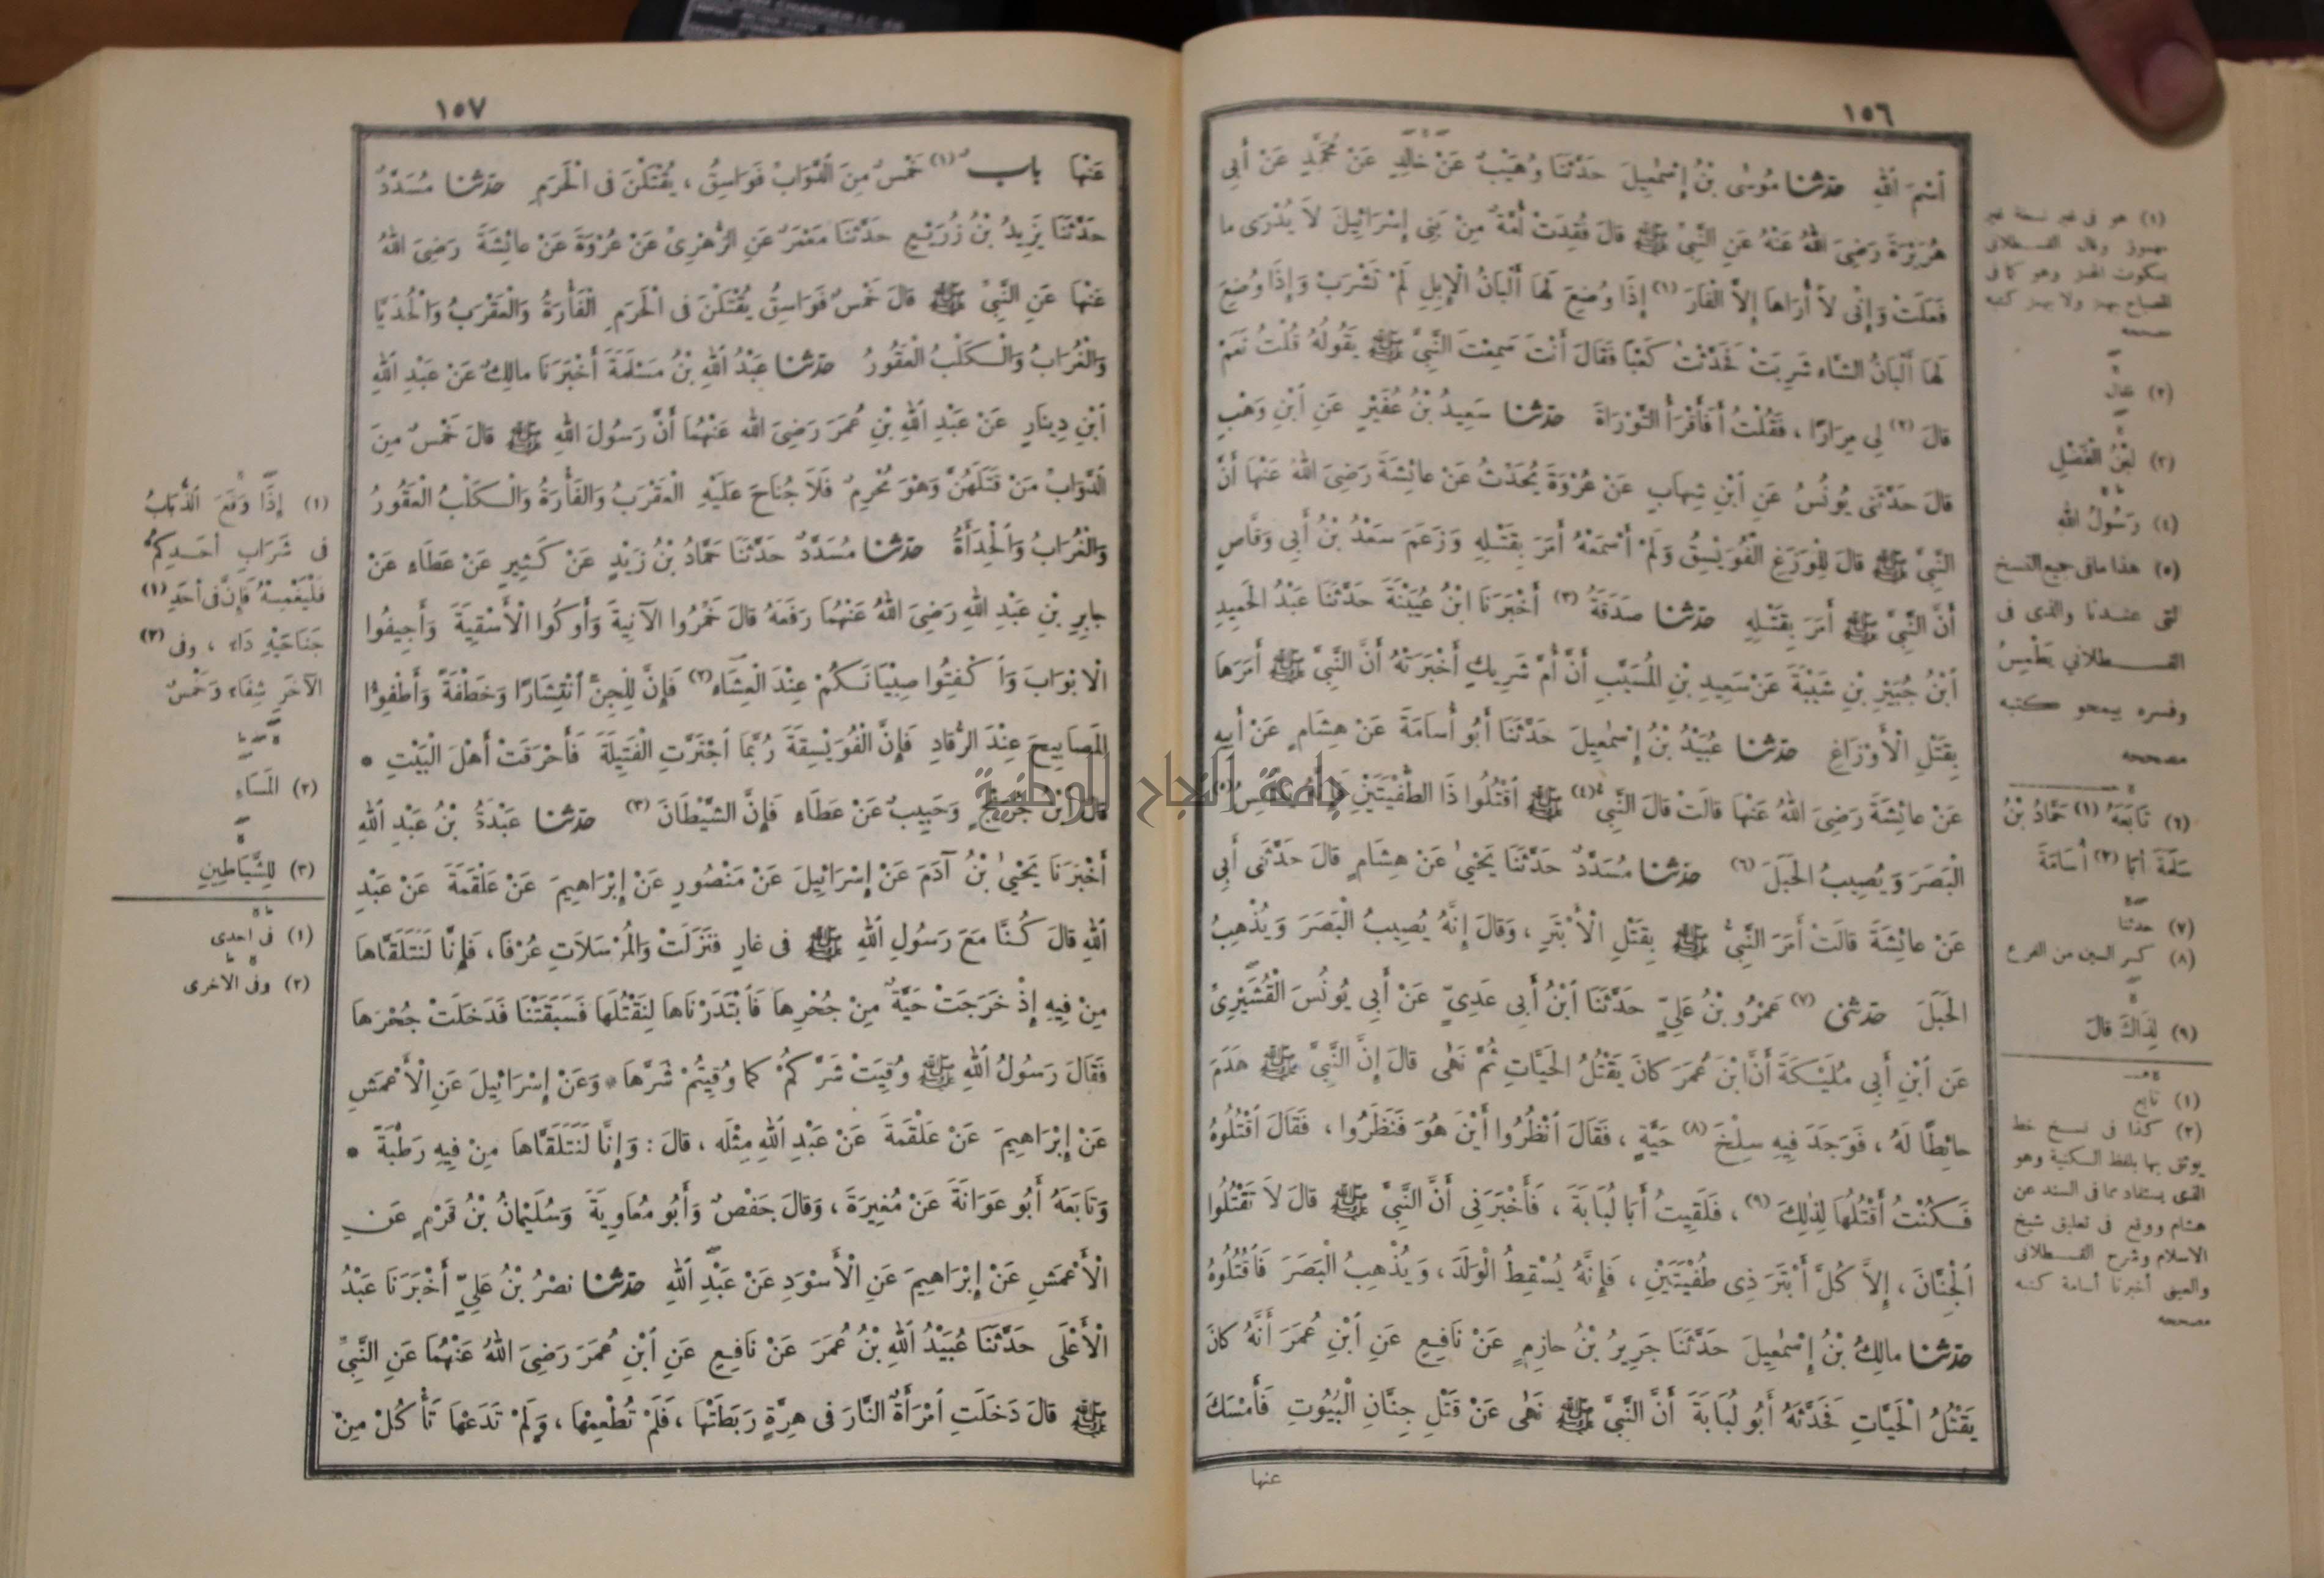 ١٥٦
ٱسْمَ ٱللهِ حدثنا مُوسَى بْنُ إِسْمٰعِيلَ حَدَّثَنَا وُهَيْبٌ عَنْ خَالِدٍ عَنْ مُحَمَّدٍ عَنْ أَبِي
هُرَيْرَةَ رَضِيَ اللهُ عَنْهُ عَنِ النَّبِيِّ ﷺ قَالَ فُقِدَتْ أُمَّةٌ مِنْ بَنِي إِسْرَائِيلَ لَا يُدْرَى مَا
فَعَلَتْ وَإِنِّي لَا أُرَاهَا إِلَّا الْفَارَ (١) إِذَا وُضِعَ لَهَا أَلْبَانُ الْإِبِلِ لَمْ تَشْرَبْ وَإِذَا وُضِعَ
لَهَا أَلْبَانُ الشَّاءِ شَرِبَتْ فَحَدَّثْتُ كَعْبًا فَقَالَ أَنْتَ سَمِعْتَ النَّبِيَّ ﷺ يَقُولُهُ قُلْتُ نَعَمْ
قَالَ (٢) لِي مِرَارًا ، فَقُلْتُ أَفَأَقْرَأُ التَّوْرَاةَ حدثنا سَعِيدُ بْنُ عُفَيْرٍ عَنِ ٱبْنِ وَهْبٍ
قَالَ حَدَّثَنِي يُونُسُ عَنِ ٱبْنِ شِهَابٍ عَنْ عُرْوَةَ يُحَدِّثُ عَنْ عَائِشَةَ رَضِيَ اللهُ عَنْهَا أَنَّ
النَّبِيَّ ﷺ قَالَ لِلْوَزَغِ الْفُوَيْسِقُ وَلَمْ أَسْمَعْهُ أَمَرَ بِقَتْلِهِ وَزَعَمَ سَعْدُ بْنُ أَبِي وَقَّاصٍ
أَنَّ النَّبِيَّ ﷺ أَمَرَ بِقَتْلِهِ حدثنا صَدَقَةُ (٣) أَخْبَرَنَا ابْنُ عُيَيْنَةَ حَدَّثَنَا عَبْدُ الْحَمِيدِ
ٱبْنُ جُبَيْرِ بْنِ شَيْبَةَ عَنْ سَعِيدِ بْنِ الْمُسَيَّبِ أَنَّ أُمَّ شَرِيكٍ أَخْبَرَتْهُ أَنَّ النَّبِيَّ ﷺ أَمَرَهَا
بِقَتْلِ الْأَوْزَاغِ حدثنا عُبَيْدُ بْنُ إِسْمٰعِيلَ حَدَّثَنَا أَبُو أُسَامَةَ عَنْ هِشَامٍ عَنْ أَبِيهِ
عَنْ عَائِشَةَ رَضِيَ اللهُ عَنْهَا قَالَتْ قَالَ النَّبِيُّ (٤) ﷺ ٱقْتُلُوا ذَا الطُّفْيَتَيْنِ فَإِنَّهُ يَلْتَمِسُ (٥)
الْبَصَرَ وَيُصِيبُ الْحَبَلَ (٦) حدثنا مُسَدَّدٌ حَدَّثَنَا يَحْيٰى عَنْ هِشَامٍ قَالَ حَدَّثَنِي أَبِي
عَنْ عَائِشَةَ قَالَتْ أَمَرَ النَّبِيُّ ﷺ بِقَتْلِ الْأَبْتَرِ ، وَقَالَ إِنَّهُ يُصِيبُ الْبَصَرَ وَيُذْهِبُ
الْحَبَلَ حدثني (٧) عَمْرُو بْنُ عَلِيٍّ حَدَّثَنَا ٱبْنُ أَبِي عَدِيٍّ عَنْ أَبِي يُونُسَ الْقُشَيْرِيِّ
عَنِ ٱبْنِ أَبِي مُلَيْكَةَ أَنَّ ابْنَ عُمَرَ كَانَ يَقْتُلُ الْحَيَّاتِ ثُمَّ نَهٰى قَالَ إِنَّ النَّبِيَّ ﷺ هَدَمَ
حَائِطًا لَهُ ، فَوَجَدَ فِيهِ سِلْخَ (٨) حَيَّةٍ ، فَقَالَ ٱنْظُرُوا أَيْنَ هُوَ فَنَظَرُوا ، فَقَالَ ٱقْتُلُوهُ
فَكُنْتُ أَقْتُلُهَا لِذٰلِكَ (٩) ، فَلَقِيتُ أَبَا لُبَابَةَ ، فَأَخْبَرَنِي أَنَّ النَّبِيَّ ﷺ قَالَ لَا تَقْتُلُوا
ٱلْجِنَّانَ ، إِلَّا كُلَّ أَبْتَرَ ذِي طُفْيَتَيْنِ ، فَإِنَّهُ يُسْقِطُ الْوَلَدَ ، وَيُذْهِبُ الْبَصَرَ فَٱقْتُلُوهُ
حدثنا مَالِكُ بْنُ إِسْمٰعِيلَ حَدَّثَنَا جَرِيرُ بْنُ حَازِمٍ عَنْ نَافِعٍ عَنِ ٱبْنِ عُمَرَ أَنَّهُ كَانَ
يَقْتُلُ الْحَيَّاتِ فَحَدَّثَهُ أَبُو لُبَابَةَ أَنَّ النَّبِيَّ ﷺ نَهٰى عَنْ قَتْلِ جِنَّانِ الْبُيُوتِ فَأَمْسَكَ
عنها
(١) هو في غير نسخة غير
مهموز وقال القسطلاني
بسكون الهمز وهو كما في
المصباح يهمز ولا يهمز كتبه
مصححه
(٢) فقال
(٣) ابْنُ الْفَضْلِ
(٤) رَسُولُ الله
(٥) هذا ما في جميع النسخ
التي عندنا والذي في
القسطلاني يَطْمِسُ
وفسره يمحو كتبه
مصححه
(٦) تَابَعَهُ (١) حَمَّادُ بْنُ
سَلَمَةَ أَبَا (٢) أُسَامَةَ
(٧) حدثنا
(٨) كسر السين من الفرع
(٩) لِذَاكَ قَالَ
(١) تابع
(٢) كذا في نسخ خط
يوثق بها بلفظ الكنية وهو
الذي يستفاد مما في السند عن
هشام ووقع في تعليق شيخ
الاسلام وشرح القسطلاني
والعيني أخبرنا أسامة كتبه
مصححه
١٥٧
عَنْهَا باب (١) خَمْسٌ مِنَ ٱلدَّوَابِّ فَوَاسِقُ ، يُقْتَلْنَ فِي الْحَرَمِ حدثنا مُسَدَّدٌ
حَدَّثَنَا يَزِيدُ بْنُ زُرَيْعٍ حَدَّثَنَا مَعْمَرٌ عَنِ الزُّهْرِيِّ عَنْ عُرْوَةَ عَنْ عَائِشَةَ رَضِيَ اللهُ
عَنْهَا عَنِ النَّبِيِّ ﷺ قَالَ خَمْسٌ فَوَاسِقُ يُقْتَلْنَ فِي الْحَرَمِ الْفَأْرَةُ وَالْعَقْرَبُ وَالْحُدَيَّا
وَالْغُرَابُ وَالْكَلْبُ الْعَقُورُ حدثنا عَبْدُ اللهِ بْنُ مَسْلَمَةَ أَخْبَرَنَا مَالِكٌ عَنْ عَبْدِ اللهِ
ٱبْنِ دِينَارٍ عَنْ عَبْدِ اللهِ بْنِ عُمَرَ رَضِيَ الله عَنْهُمَا أَنَّ رَسُولَ اللهِ ﷺ قَالَ خَمْسٌ مِنَ
ٱلدَّوَابِّ مَنْ قَتَلَهُنَّ وَهْوَ مُحْرِمٌ فَلَا جُنَاحَ عَلَيْهِ الْعَقْرَبُ وَالْفَأْرَةُ وَالْكَلْبُ الْعَقُورُ
وَالْغُرَابُ وَالْحِدَأَةُ حدثنا مُسَدَّدٌ حَدَّثَنَا حَمَّادُ بْنُ زَيْدٍ عَنْ كَثِيرٍ عَنْ عَطَاءٍ عَنْ
جَابِرِ بْنِ عَبْدِ اللهِ رَضِيَ اللهُ عَنْهُمَا رَفَعَهُ قَالَ خَمِّرُوا الْآنِيةَ وَأَوْكُوا الْأَسْقِيَةَ وَأَجِيفُوا
الْأَبْوَابَ وَٱكْفِتُوا صِبْيَانَكُمْ عِنْدَ الْعِشَاءِ (٢) فَإِنَّ لِلْجِنِّ ٱنْتِشَارًا وَخَطْفَةً وَأَطْفِؤُا
الْمَصَابِيحَ عِنْدَ الرُّقَادِ فَإِنَّ الْفُوَيْسِقَةَ رُبَّمَا ٱجْتَرَّتِ الْفَتِيلَةَ فَأَحْرَقَتْ أَهْلَ الْبَيْتِ *
قَالَ ابْنُ جُرَيْجٍ وَحَبِيبٌ عَنْ عَطَاءٍ فَإِنَّ الشَّيْطَانَ (٣) حدثنا عَبْدَةُ بْنُ عَبْدِ اللهِ
أَخْبَرَنَا يَحْيٰى بْنُ آدَمَ عَنْ إِسْرَائِيلَ عَنْ مَنْصُورٍ عَنْ إِبْرَاهِيمَ عَنْ عَلْقَمَةَ عَنْ عَبْدِ
اللهِ قَالَ كُنَّا مَعَ رَسُولِ اللهِ ﷺ فِي غَارٍ فَنَزَلَتْ وَالْمُرْسَلَاتِ عُرْفًا ، فَإِنَّا لَنَتَلَقَّاهَا
مِنْ فِيهِ إِذْ خَرَجَتْ حَيَّةٌ مِنْ جُحْرِهَا فَٱبْتَدَرْنَاهَا لِنَقْتُلَهَا فَسَبَقَتْنَا فَدَخَلَتْ جُحْرَهَا
فَقَالَ رَسُولُ اللهِ ﷺ وُقِيَتْ شَرَّكُمْ كَمَا وُقِيتُمْ شَرَّهَا * وَعَنْ إِسْرَائِيلَ عَنِ الْأَعْمَشِ
عَنْ إِبْرَاهِيمَ عَنْ عَلْقَمَةَ عَنْ عَبْدِ اللهِ مِثْلَه ، قَالَ : وَإِنَّا لَنَتَلَقَّاهَا مِنْ فِيهِ رَطْبَةً *
وَتَابَعَهُ أَبُو عَوَانَةَ عَنْ مُغِيرَةَ ، وَقَالَ حَفْصٌ وَأَبُو مُعَاوِيَةَ وَسُلَيْمَانُ بْنُ قَرْمٍ عَنِ
الْأَعْمَشِ عَنْ إِبْرَاهِيمَ عَنِ الْأَسْوَدِ عَنْ عَبْدِ اللهِ حدثنا نَصْرُ بْنُ عَلِيٍّ أَخْبَرَنَا عَبْدُ
الْأَعْلَى حَدَّثَنَا عُبَيْدُ اللهِ بْنُ عُمَرَ عَنْ نَافِعٍ عَنِ ٱبْنِ عُمَرَ رَضِيَ اللهُ عَنْهُمَا عَنِ النَّبِيِّ
ﷺ قَالَ دَخَلَتِ ٱمْرَأَةٌ النَّارَ فِي هِرَّةٍ رَبَطَتْهَا ، فَلَمْ تُطْعِمْهَا ، وَلَمْ تَدَعْهَا تَأْكُلْ مِنْ
(١) إِذَا وَقَعَ الذُّبَابُ
فِي شَرَابِ أَحَدِكُمْ
فَلْيَغْمِسْهُ فَإِنَّ فِي أَحَدِ (١)
جَنَاحَيْهِ دَاءً ، وفي (٢)
الآخَرِ شِفَاءً وَخَمْسٌ
(٢) الْمَسَاءِ
(٣) لِلشَّيَاطِينِ
(١) في احدى
(٢) وفي الاخرى
جامعة النجاح الوطنية